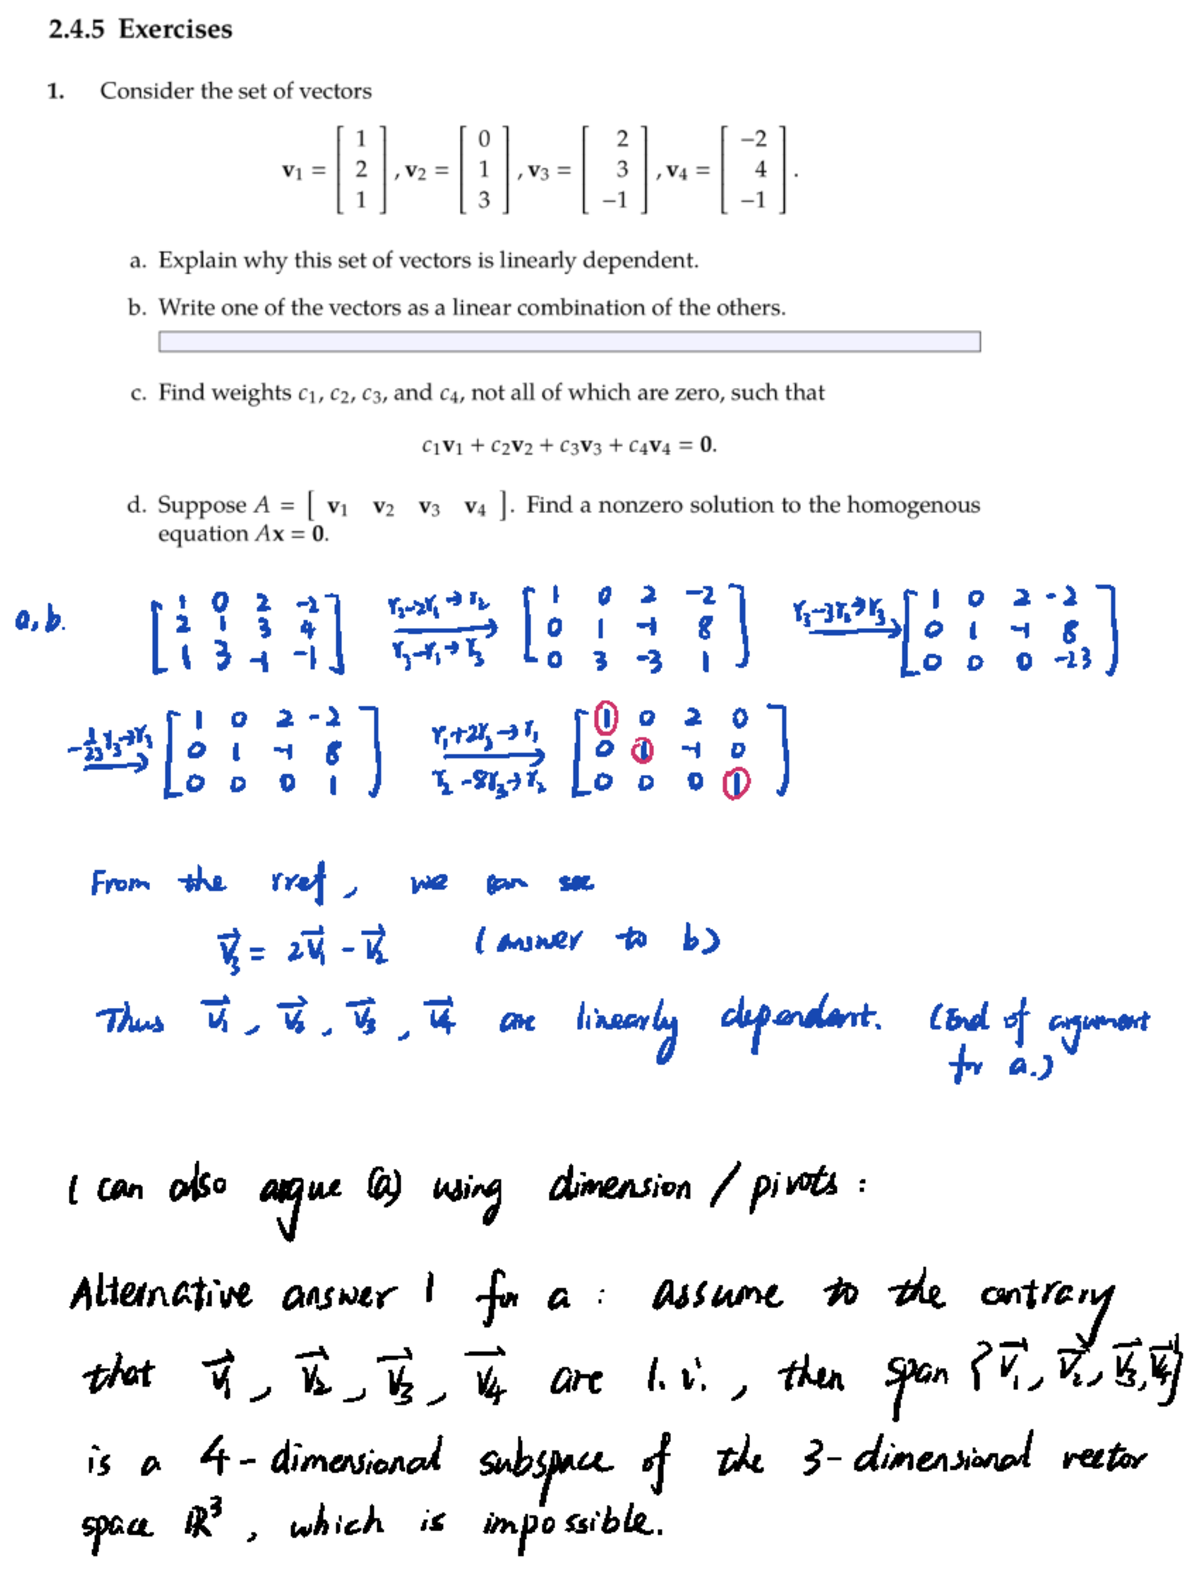 2.4.5 Exercises
1. Consider the set of vectors
v₁ = [ 1 2 1 ], v₂ = [ 0 1 3 ], v₃ = [ 2 3 −1 ], v₄ = [ −2 4 −1 ].
a. Explain why this set of vectors is linearly dependent.
b. Write one of the vectors as a linear combination of the others.
c. Find weights c₁, c₂, c₃, and c₄, not all of which are zero, such that
c₁v₁ + c₂v₂ + c₃v₃ + c₄v₄ = 0.
d. Suppose A = [ v₁ v₂ v₃ v₄ ]. Find a nonzero solution to the homogenous
equation Ax = 0.
a, b. [ 1 0 2 -2 ; 2 1 3 4 ; 1 3 -1 -1 ] r₂-2r₁→r₂ r₃-r₁→r₃ [ 1 0 2 -2 ; 0 1 -1 8 ; 0 3 -3 1 ] r₃-3r₂→r₃ [ 1 0 2 -2 ; 0 1 -1 8 ; 0 0 0 -23 ]
-1/23 r₃→r₃ [ 1 0 2 -2 ; 0 1 -1 8 ; 0 0 0 1 ] r₁+2r₃→r₁ r₂-8r₃→r₂ [ 1 0 2 0 ; 0 1 -1 0 ; 0 0 0 1 ]
From the rref, we can see
v⃗₃ = 2v⃗₁ - v⃗₂ (answer to b)
Thus v⃗₁, v⃗₂, v⃗₃, v⃗₄ are linearly dependent. (End of argument
for a.)
I can also argue (a) using dimension / pivots :
Alternative answer 1 for a : assume to the contrary
that v⃗₁, v⃗₂, v⃗₃, v⃗₄ are l. i. , then span {v⃗₁, v⃗₂, v⃗₃, v⃗₄}
is a 4-dimensional subspace of the 3-dimensional vector
space ℝ³, which is impossible.